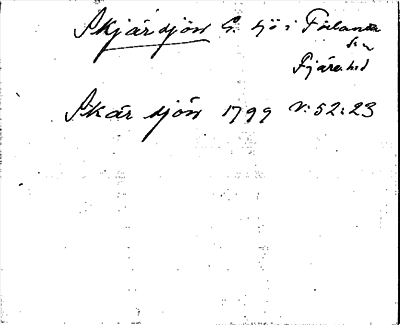 Skjärsjön G. sjö i Förlanda
sn
Fjäre hd
Skär sjön 1799 V:52:23